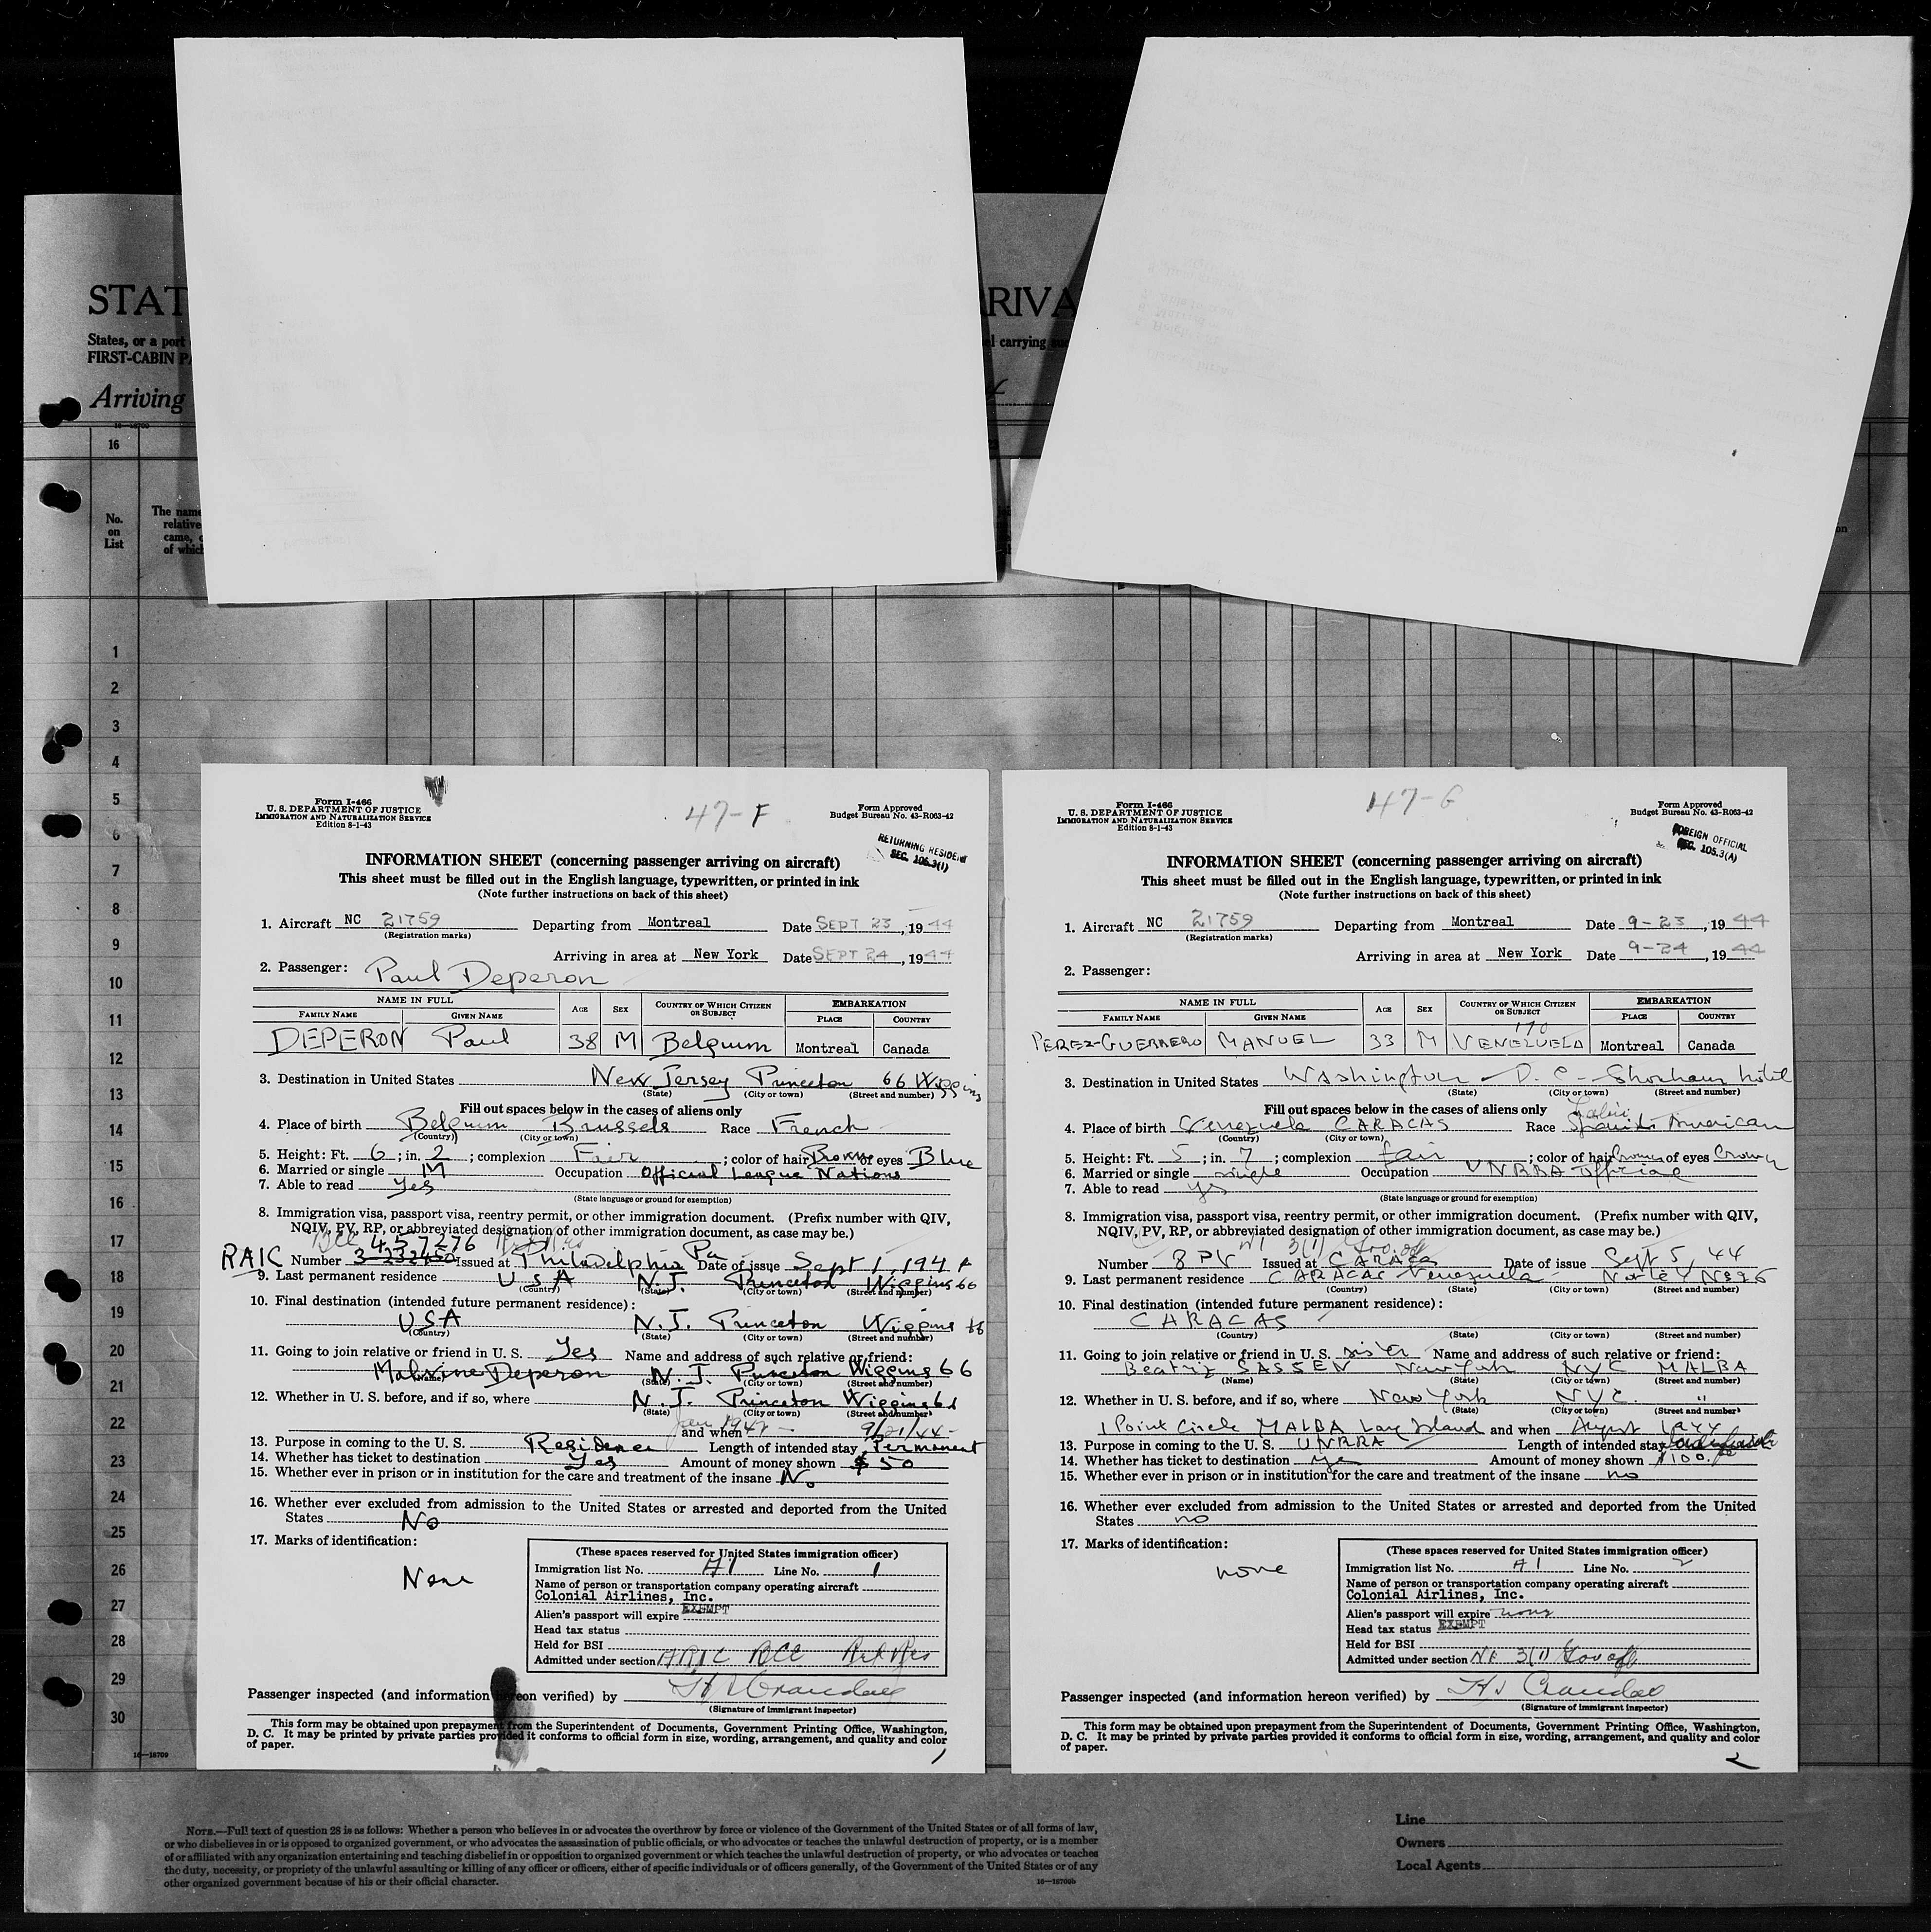 STAT
RIVA
States, or a port
el carrying suc
FIRST-CABIN P
Arriving
16—18709
16
No.
on
List
The name
relative
came,
of which
1
2
3
4
5
6
7
8
9
10
11
12
13
14
15
16
17
18
19
20
21
22
23
24
25
26
27
28
29
30
16—18709
Form I-466
U. S. DEPARTMENT OF JUSTICE
IMMIGRATION AND NATURALIZATION SERVICE
Edition 8-1-43
47-F
Form Approved
Budget Bureau No. 43-R063-42
RETURNING RESIDENT
SEC. 105.3(1)
INFORMATION SHEET (concerning passenger arriving on aircraft)
This sheet must be filled out in the English language, typewritten, or printed in ink
(Note further instructions on back of this sheet)
1. Aircraft NC 21759 Departing from Montreal Date SEPT 23, 1944
(Registration marks)
Arriving in area at New York Date SEPT 24, 1944
2. Passenger: Paul Deperon
NAME IN FULL AGE SEX COUNTRY OF WHICH CITIZEN OR SUBJECT EMBARKATION
FAMILY NAME GIVEN NAME PLACE COUNTRY
DEPERON Paul 38 M Belgium Montreal Canada
3. Destination in United States New Jersey Princeton 66 Wiggins
(State) (City or town) (Street and number)
Fill out spaces below in the cases of aliens only
4. Place of birth Belgium Brussels Race French
(Country) (City or town)
5. Height: Ft. 6; in. 2; complexion Fair; color of hair Brown eyes Blue
6. Married or single M Occupation Official League Nations
7. Able to read Yes
(State language or ground for exemption)
8. Immigration visa, passport visa, reentry permit, or other immigration document. (Prefix number with QIV,
NQIV, PV, RP, or abbreviated designation of other immigration document, as case may be.)
BCC 457276
RAIC Number Issued at Philadelphia Pa Date of issue Sept 1, 194
9. Last permanent residence USA N.J. Princeton Wiggins 66
(Country) (State) (City or town) (Street and number)
10. Final destination (intended future permanent residence):
USA N.J. Princeton Wiggins 66
(Country) (State) (City or town) (Street and number)
11. Going to join relative or friend in U. S. Yes Name and address of such relative or friend:
Deperon N.J. Princeton Wiggins 66
(Name) (State) (City or town) (Street and number)
12. Whether in U. S. before, and if so, where N.J. Princeton Wiggins 66
(State) (City or town) (Street and number)
and when 9/21/44
13. Purpose in coming to the U. S. Residence Length of intended stay Permanent
14. Whether has ticket to destination Yes Amount of money shown $50
15. Whether ever in prison or in institution for the care and treatment of the insane No
16. Whether ever excluded from admission to the United States or arrested and deported from the United
States No
17. Marks of identification:
None
(These spaces reserved for United States immigration officer)
Immigration list No. A1 Line No. 1
Name of person or transportation company operating aircraft
Colonial Airlines, Inc.
Alien's passport will expire EXEMPT
Head tax status
Held for BSI
Admitted under section ARIC BCC Ret Res
Passenger inspected (and information hereon verified) by H S Crandall
(Signature of immigrant inspector)
This form may be obtained upon prepayment from the Superintendent of Documents, Government Printing Office, Washington,
D. C. It may be printed by private parties provided it conforms to official form in size, wording, arrangement, and quality and color
of paper.
1
Form I-466
U. S. DEPARTMENT OF JUSTICE
IMMIGRATION AND NATURALIZATION SERVICE
Edition 8-1-43
47-G
Form Approved
Budget Bureau No. 43-R063-42
FOREIGN OFFICIAL
SEC. 105.3(A)
INFORMATION SHEET (concerning passenger arriving on aircraft)
This sheet must be filled out in the English language, typewritten, or printed in ink
(Note further instructions on back of this sheet)
1. Aircraft NC 21759 Departing from Montreal Date 9-23, 1944
(Registration marks)
Arriving in area at New York Date 9-24, 1944
2. Passenger:
NAME IN FULL AGE SEX COUNTRY OF WHICH CITIZEN OR SUBJECT EMBARKATION
FAMILY NAME GIVEN NAME PLACE COUNTRY
PEREZ-GUERRERO MANUEL 33 M VENEZUELA Montreal Canada
3. Destination in United States Washington D.C. Shoreham Hotel
(State) (City or town) (Street and number)
Fill out spaces below in the cases of aliens only
4. Place of birth Venezuela CARACAS Race Spanish American
(Country) (City or town)
5. Height: Ft. 5; in. 7; complexion fair; color of hair brown of eyes brown
6. Married or single single Occupation UNRRA Official
7. Able to read yes
(State language or ground for exemption)
8. Immigration visa, passport visa, reentry permit, or other immigration document. (Prefix number with QIV,
NQIV, PV, RP, or abbreviated designation of other immigration document, as case may be.)
Number 8 PV Issued at CARACAS Date of issue Sept 5, 44
9. Last permanent residence CARACAS Venezuela Norte 4 No 96
(Country) (State) (City or town) (Street and number)
10. Final destination (intended future permanent residence):
CARACAS
(Country) (State) (City or town) (Street and number)
11. Going to join relative or friend in U. S. sister Name and address of such relative or friend:
Beatriz SASSEN New York NYC MALBA
(Name) (State) (City or town) (Street and number)
12. Whether in U. S. before, and if so, where New York NYC. "
(State) (City or town) (Street and number)
1 Point Circle MALBA Long Island and when August 1944
13. Purpose in coming to the U. S. UNRRA Length of intended stay
14. Whether has ticket to destination yes Amount of money shown $100.
15. Whether ever in prison or in institution for the care and treatment of the insane no
16. Whether ever excluded from admission to the United States or arrested and deported from the United
States no
17. Marks of identification:
none
(These spaces reserved for United States immigration officer)
Immigration list No. A1 Line No. 2
Name of person or transportation company operating aircraft
Colonial Airlines, Inc.
Alien's passport will expire none
Head tax status EXEMPT
Held for BSI
Admitted under section 3(1) Gov off
Passenger inspected (and information hereon verified) by H S Crandall
(Signature of immigrant inspector)
This form may be obtained upon prepayment from the Superintendent of Documents, Government Printing Office, Washington,
D. C. It may be printed by private parties provided it conforms to official form in size, wording, arrangement, and quality and color
of paper.
2
NOTE.—Full text of question 28 is as follows: Whether a person who believes in or advocates the overthrow by force or violence of the Government of the United States or of all forms of law,
or who disbelieves in or is opposed to organized government, or who advocates the assassination of public officials, or who advocates or teaches the unlawful destruction of property, or is a member
of or affiliated with any organization entertaining and teaching disbelief in or opposition to organized government or which teaches the unlawful destruction of property, or who advocates or teaches
the duty, necessity, or propriety of the unlawful assaulting or killing of any officer or officers, either of specific individuals or of officers generally, of the Government of the United States or of any
other organized government because of his or their official character.
16—18709b
Line
Owners
Local Agents